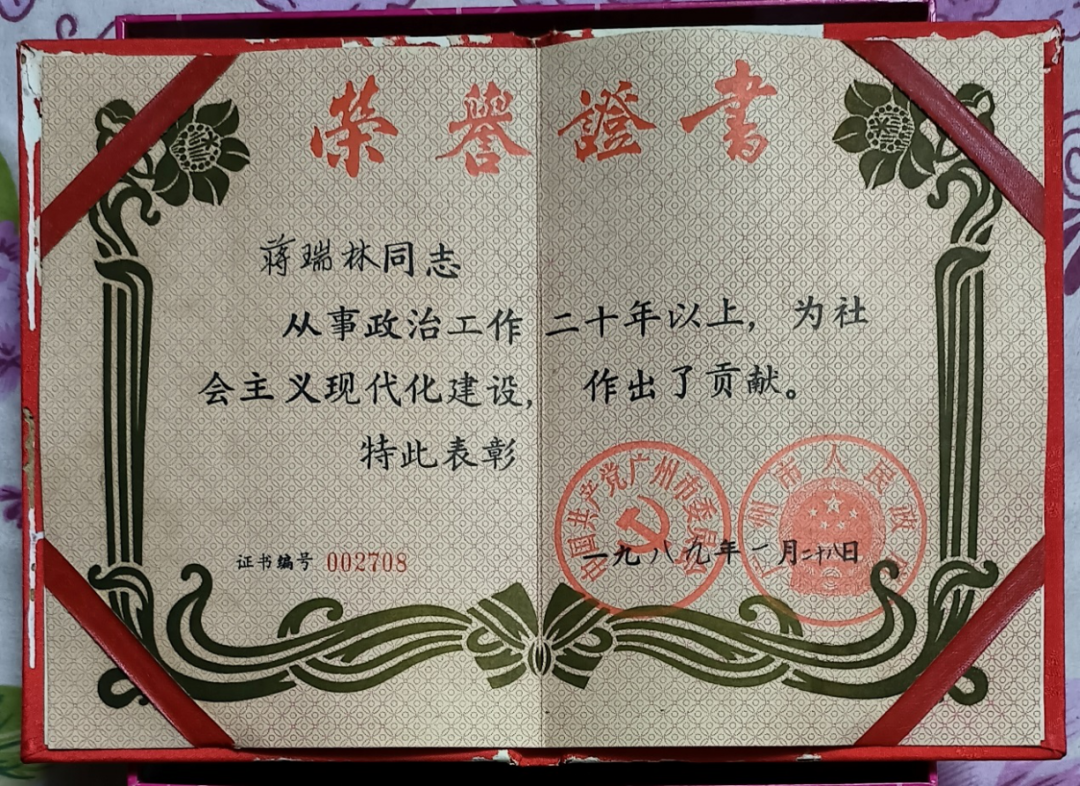 荣誉證書
蒋瑞林同志
从事政治工作二十年以上，为社
会主义现代化建设，作出了贡献。
特此表彰
中国共产党广州市委员会
广州市人民政府
证书编号 002708
一九八九年一月二十八日